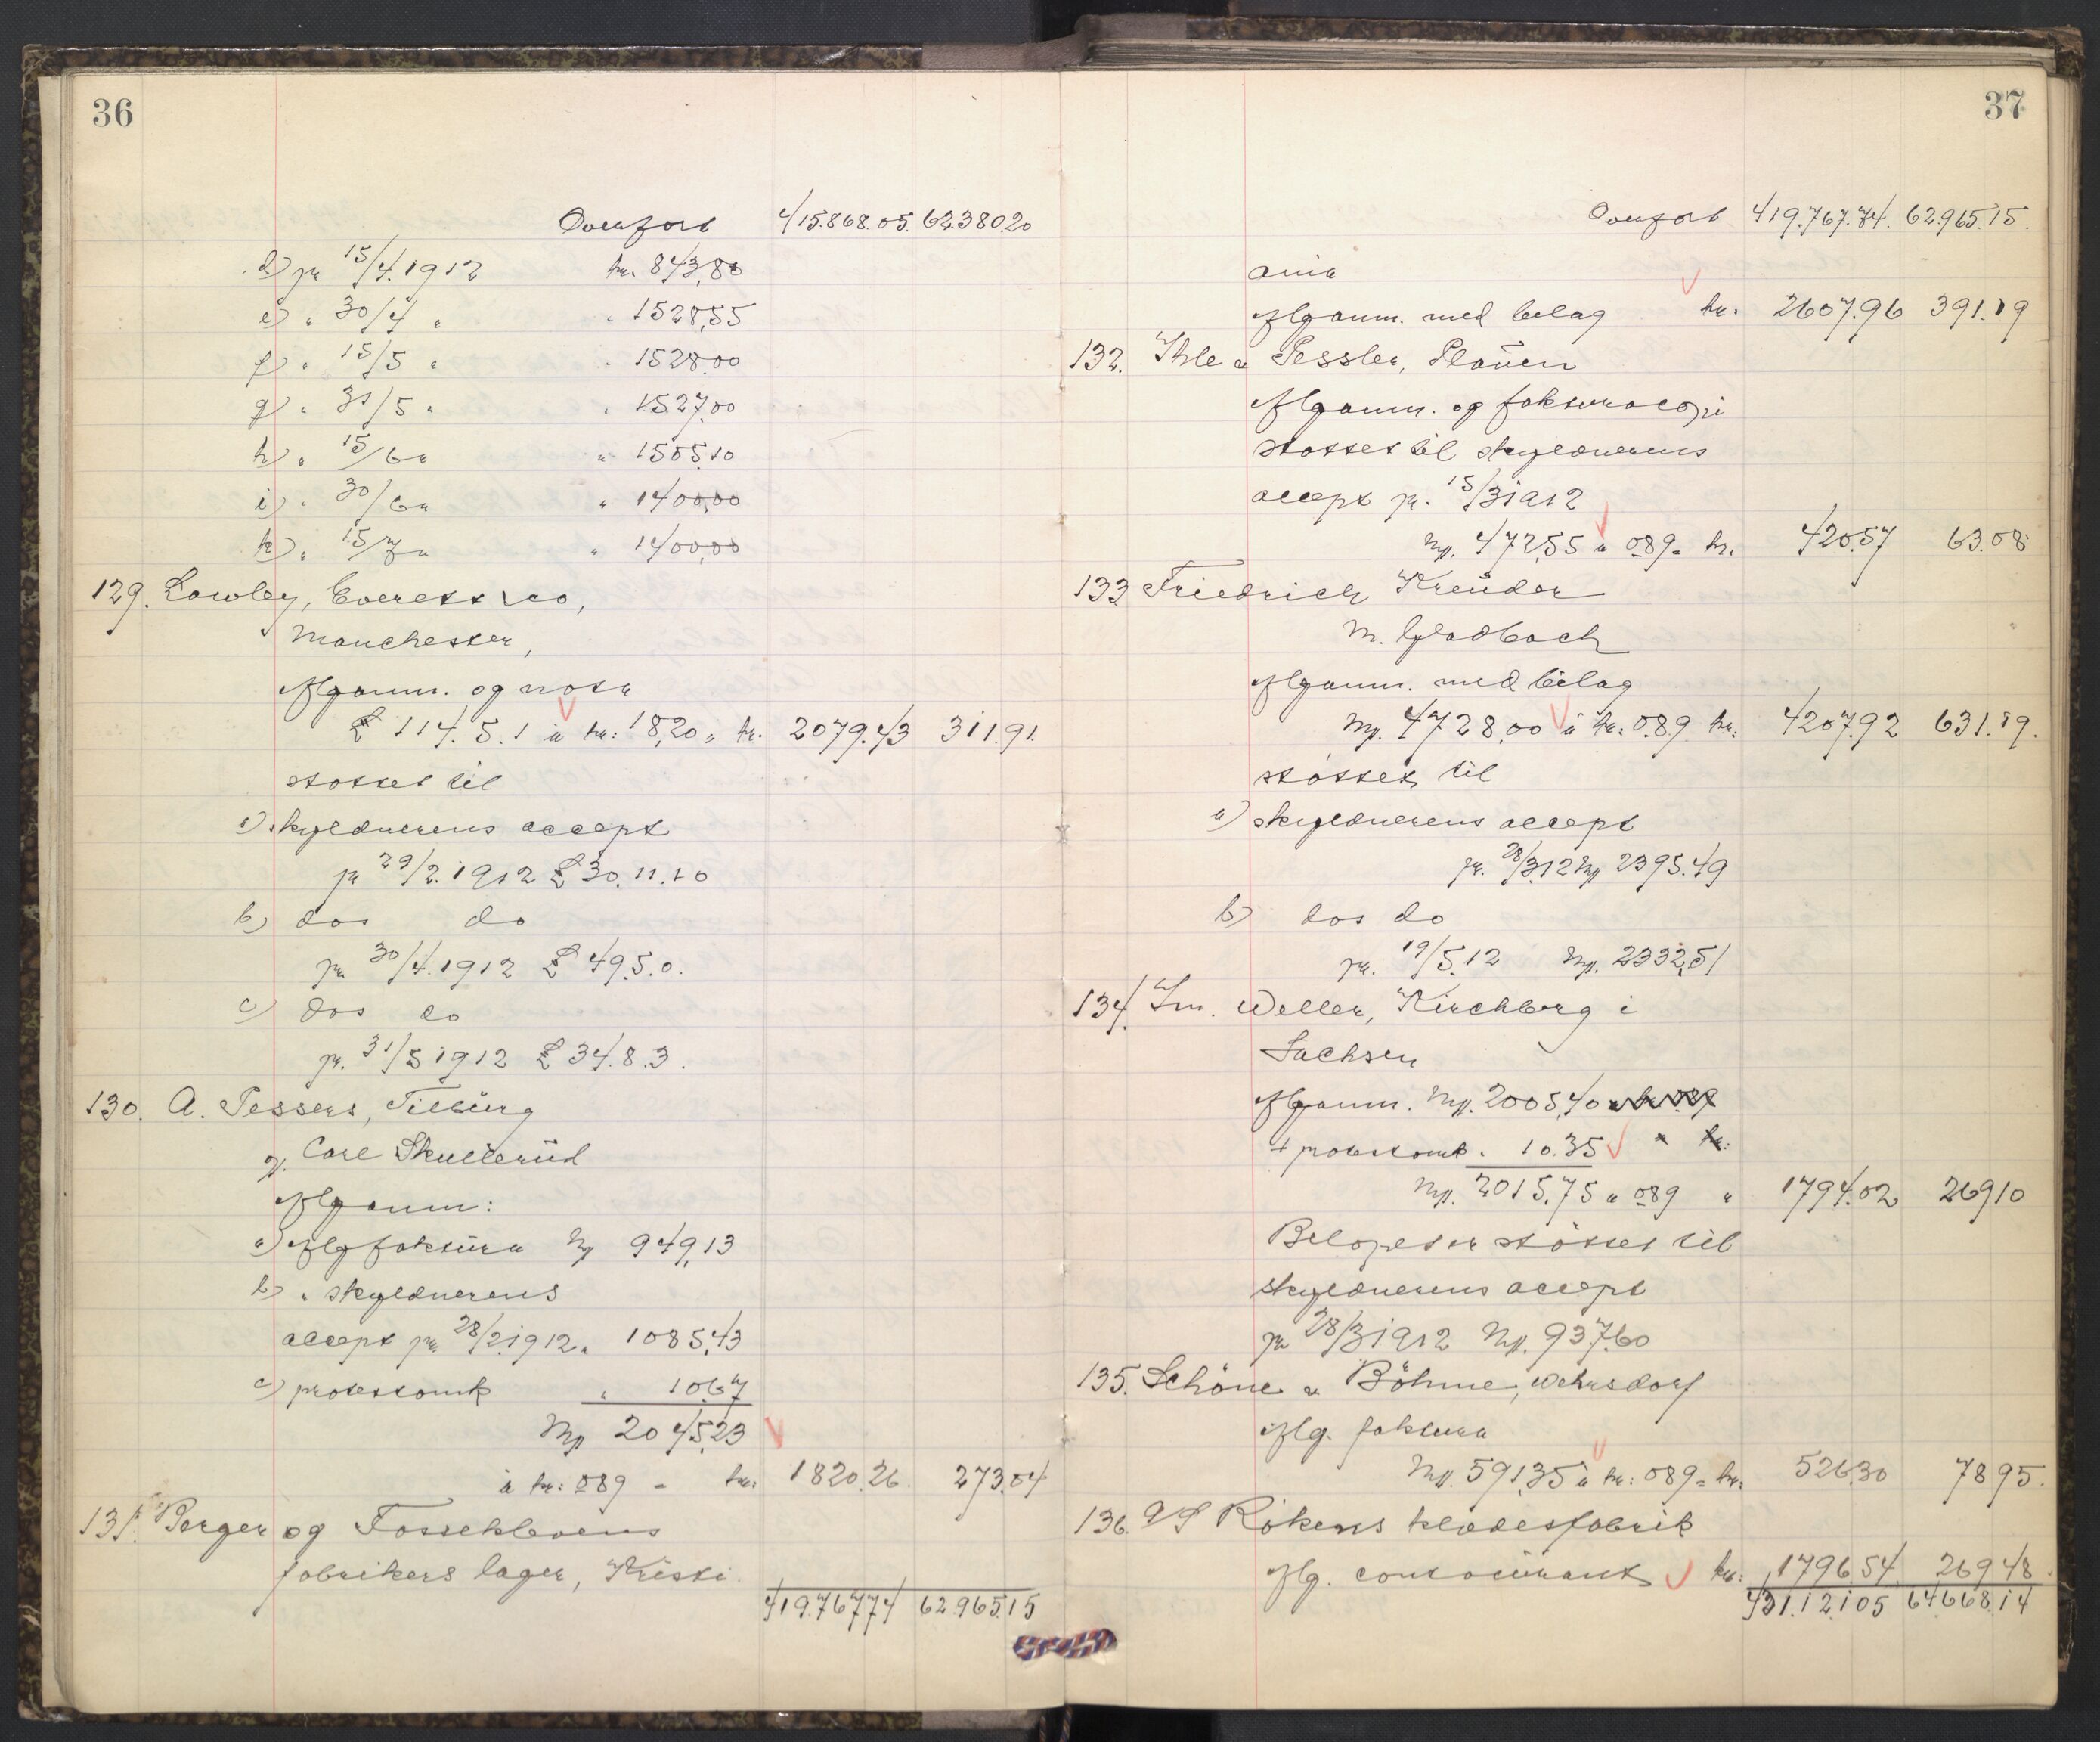 36
Overført 415.868.05. 62.380.20
d) pr 15/4.1912 kr. 843,80
e) " 30/4 " " 1528,55
f) " 15/5 " " 1528.00
g) " 31/5 " " 1527,00
h) " 15/6 " " 1505,10
i) " 30/6 " " 1400,00
k) " 15/7 " " 1400,00
129. Lowley, Everest & Co,
Manchester,
iflg anm. og nota
£ 114.5.1 à kr: 18,20 = kr. 2079.43 311.91.
støttet til
a) skyldnerens accept
pr 29/2.1912 £ 30.11.10
b) dos do
pr 30/4.1912 £ 49.5.0.
c) dos do
pr. 31/5 1912 £ 34.8.3.
130. A. Pessers, Tilburg
p. Carl Skullerud
iflg anm:
a) iflg faktura Mk 949,13
b) " skyldnerens
accept pr 28/2.1912 " 1085,43
c) protestomk " 10.67
Mk 2045,23
à kr: 0.89 = kr: 1820.26. 273.04
131. Berger og Fossekleven
fabrikers lager, Kristi
419.767.74 62.965.15
37
Overført 419.767.74. 62.965.15.
ania
iflg anm. med bilag kr. 2607.96 391.19
132. Ihle & Pessler, Plauen
iflg anm. og fakturacopi
støttet til skyldnerens
accept pr. 15/3 1912
Mk. 472,55 à 0.89 = kr. 420.57 63.08
133. Friedrich Kreuder
M. Gladbach
iflg anm. med bilag
Mk. 4728,00 à kr: 0.89 kr: 4207.92 631.19.
støttet til
a) skyldnerens accept
pr. 28/3.12 Mk 2395.49
b) dos do
pr. 19/5.12 Mk. 2332,51
134. Im. Weller, Kirchberg i
Sachsen
iflg anm. Mk. 2005,40
+ protestomk. 10.35 " kr:
Mk. 2015,75 à 0.89 " 1794.02 269.10
Beløpet er støttet til
skyldnerens accept
pr 28/3 1912 Mk. 937.60
135. Schöne & Böhme, Wehrsdorf
iflg. faktura
Mk. 591,35 à kr: 0.89 = kr: 526.30 78.95.
136. A/S Rökens klædesfabrik
iflg. contocurant kr: 1796.54 269.48.
431.121.05 64.668.14